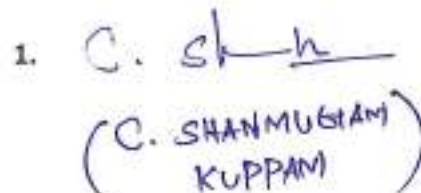 1. C. Sh
(C. SHANMUGAM
KUPPAM)